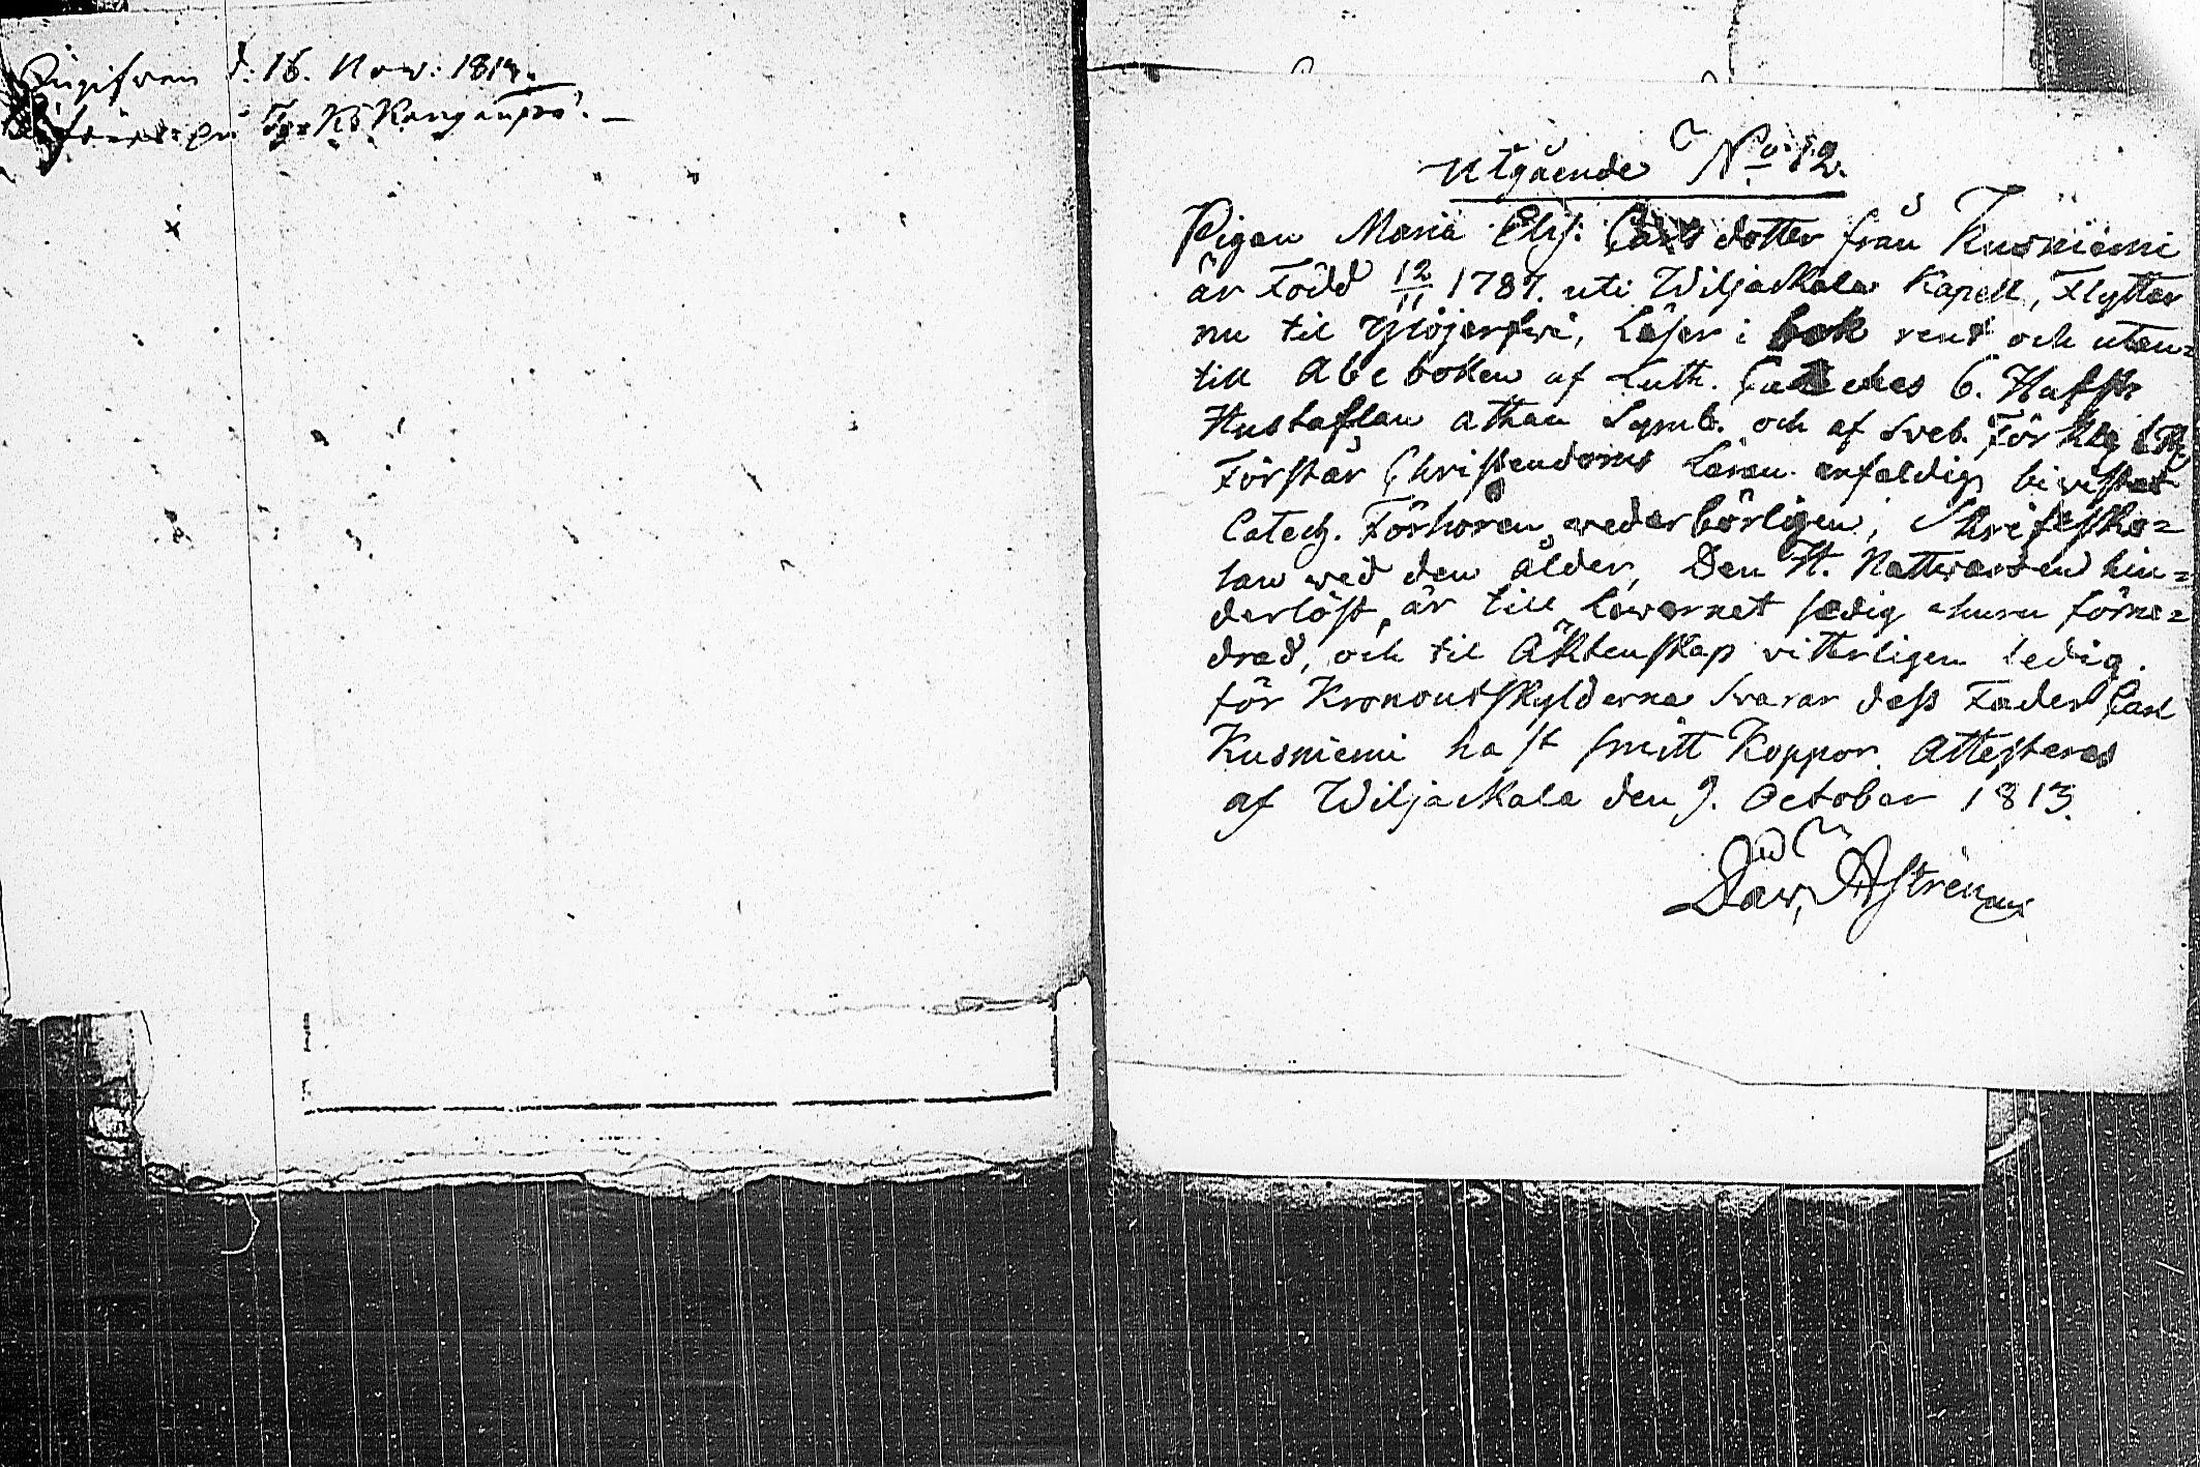 d: 16. Nov: 1814.
Utgående No 12.
Pigan Maria Elis: Carls dotter från Kusniemi
är Född 12/11 1787. uti Wiljackala Kapell, Flyttar
nu til Ylöjerfwi, Läser i bok rent och utan=
till Abc boken af Luth. Cateches 6. Hufst
Hustaflan athan Symb. och af Sveb. Förkl
Förstår Christendoms Läran enfaldig bivistat
Catech. Förhören wederbörligen, Skriftsko=
lan wed den ålder, Den H. Nattwarden hin=
derlöst, är till Lewernet sedig ehuru förne=
drad, och til Äktenskap vitterligen ledig.
för Kronoutskylderna svarar dess Fader Carl
Kusniemi haft smitt Koppor. Attesteras
af Wiljackala den 9. October 1813.
Dav:d Astrén